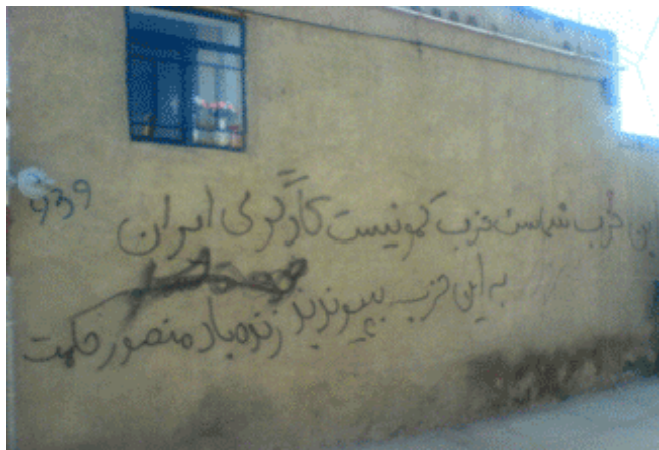 این حزب شماست حزب کمونیست کارگری ایران
به این حزب بپیوندید
زنده باد منصور حکمت
939